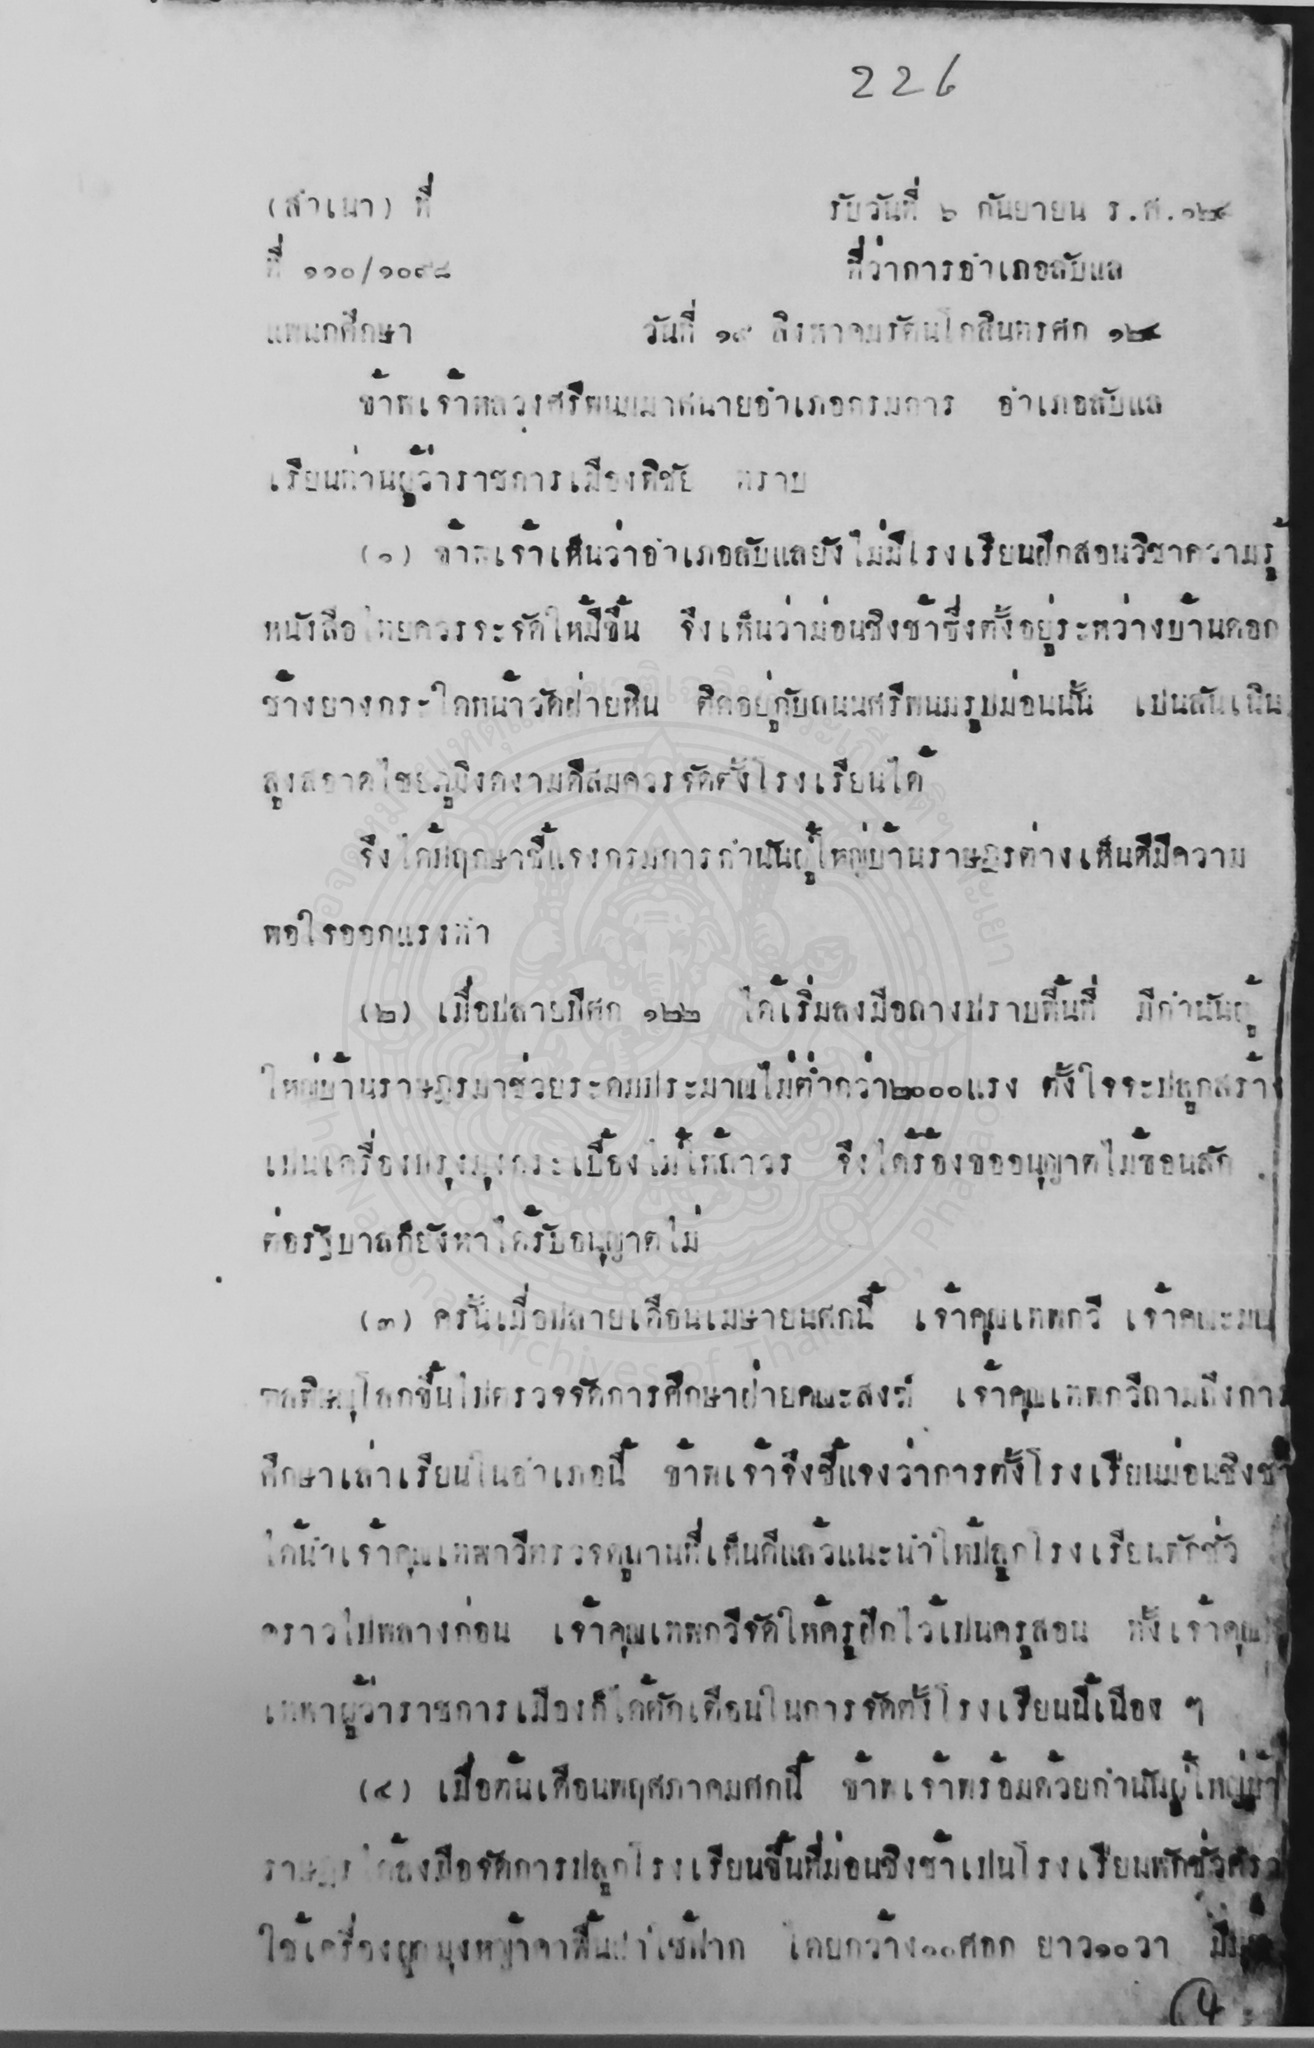 226
(สำเนา) ที่ รับวันที่ ๖ กันยายน ร.ศ.๑๒๔
ที่ ๑๑๐/๑๐๙๘ ที่ว่าการอำเภอลับแล
แพนกศึกษา วันที่ ๑๙ สิงหาคมรัตนโกสินทรศก ๑๒๔
ข้าพเจ้าหลวงศรีพนมมาศนายอำเภอกรมการ อำเภอลับแล
เรียนท่านผู้ว่าราชการเมืองพิชัย ทราบ
(๑) ข้าพเจ้าเห็นว่าอำเภอลับแลยังไม่มีโรงเรียนฝึกสอนวิชาความรู้
หนังสือไทยควรจะจัดให้มีขึ้น จึงเห็นว่าม่อนชิงช้าซึ่งตั้งอยู่ระหว่างบ้านคอก
ช้างยางกระไดหน้าวัดฝ่ายหิน ติดอยู่กับถนนศรีพนมรูปม่อนนั้น เปนสันเนิน
สูงสอาดไชยภูมิงดงามดีสมควรจัดตั้งโรงเรียนได้
จึงได้ปฤกษาชี้แจงกรมการกำนันผู้ใหญ่บ้านราษฎรต่างเห็นดีมีความ
พอใจออกแรงทำ
(๒) เมื่อปลายปีศก ๑๒๒ ได้เริ่มลงมือถางปราบพื้นที่ มีกำนันผู้
ใหญ่บ้านราษฎรมาช่วยระดมประมาณไม่ต่ำกว่า๒๐๐๐แรง ตั้งใจจะปลูกสร้าง
เปนเครื่องปรุงมุงกระเบื้องไม้ให้ถาวร จึงได้ร้องขออนุญาตไม้ขอนสัก
ต่อรัฐบาลก็ยังหาได้รับอนุญาตไม่
(๓) ครั้นเมื่อปลายเดือนเมษายนศกนี้ เจ้าคุณเทพกวี เจ้าคณะมณ
ฑลพิษณุโลกขึ้นไปตรวจจัดการศึกษาฝ่ายคณะสงฆ์ เจ้าคุณเทพกวีถามถึงการ
ศึกษาเล่าเรียนในอำเภอนี้ ข้าพเจ้าจึงชี้แจงว่าการตั้งโรงเรียนม่อนชิงช้า
ได้นำเจ้าคุณเทพกวีตรวจดูถานที่เห็นดีแล้วแนะนำให้ปลูกโรงเรียนพักชั่ว
คราวไปพลางก่อน เจ้าคุณเทพกวีจัดให้ครูฝึกไว้เปนครูสอน ทั้งเจ้าคุณ
เทพาผู้ว่าราชการเมืองก็ได้ตักเตือนในการจัดตั้งโรงเรียนนี้เนือง ๆ
(๔) เมื่อต้นเดือนพฤศภาคมศกนี้ ข้าพเจ้าพร้อมด้วยกำนันผู้ใหญ่บ้าน
ราษฎรได้ลงมือจัดการปลูกโรงเรียนขึ้นที่ม่อนชิงช้าเปนโรงเรียนพักชั่วคราว
ใช้เครื่องผูกมุงหญ้าคาพื้นฝาใช้ฟาก โดยกว้าง๑๐ศอก ยาว๑๐วา มีมุข
4